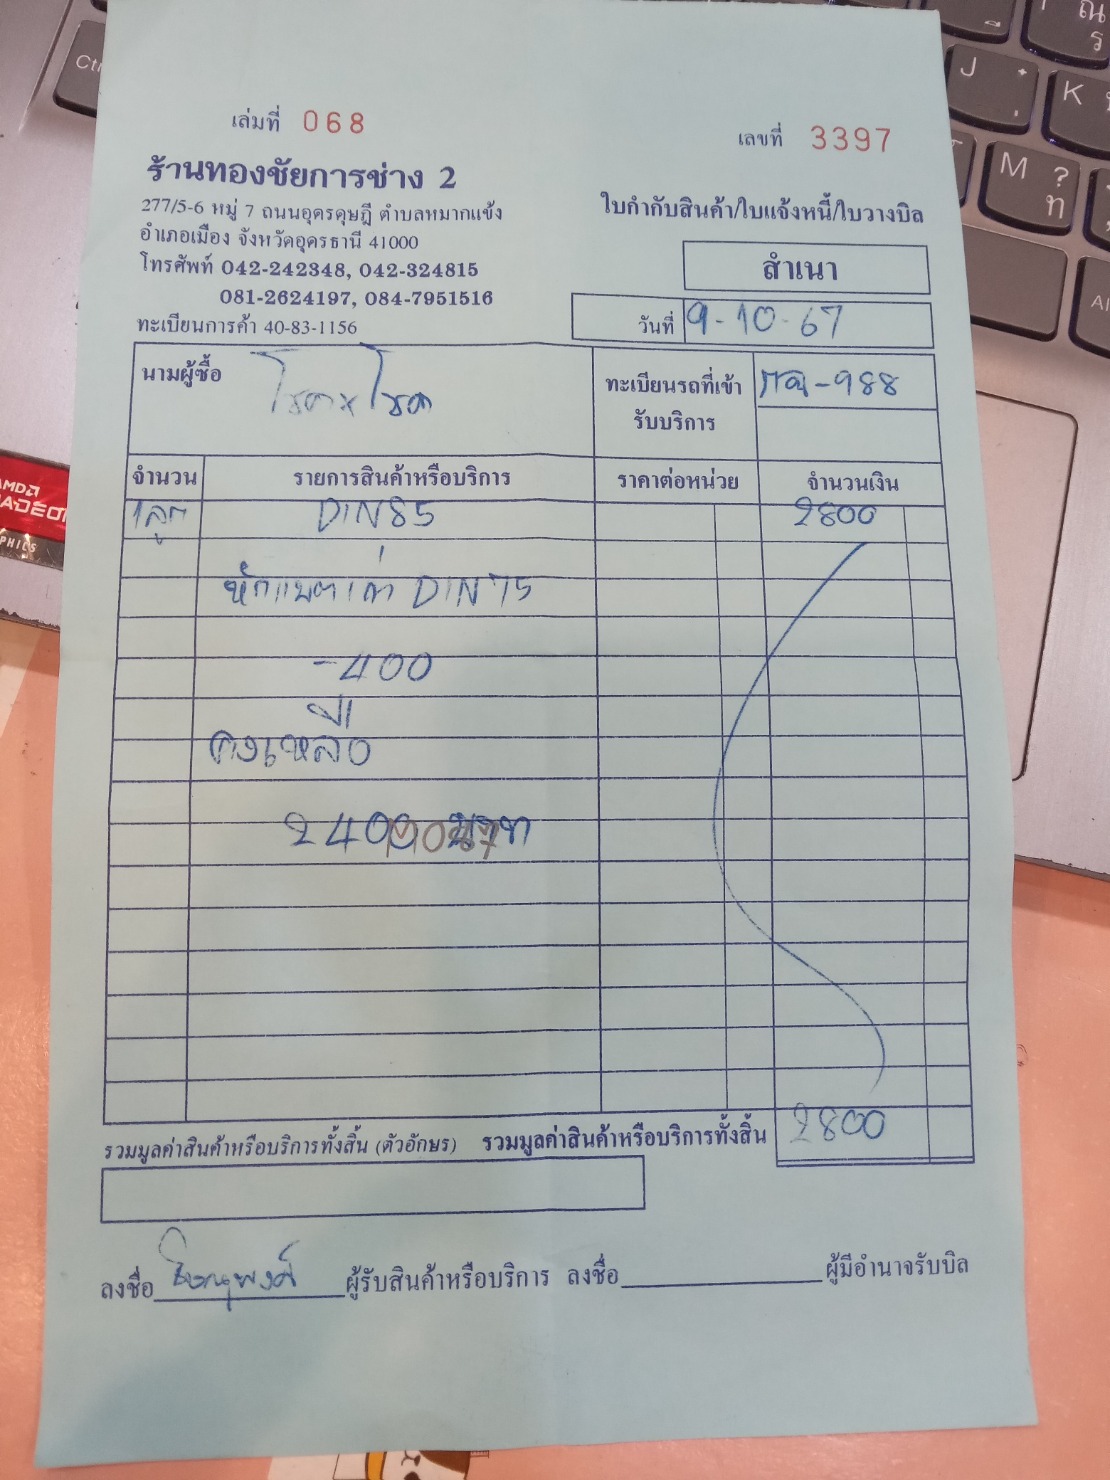 เล่มที่ 068
เลขที่ 3397
ร้านทองชัยการช่าง 2
277/5-6 หมู่ 7 ถนนอุดรดุษฎี ตำบลหมากแข้ง
อำเภอเมือง จังหวัดอุดรธานี 41000
โทรศัพท์ 042-242348, 042-324815
081-2624197, 084-7951516
ทะเบียนการค้า 40-83-1156
ใบกำกับสินค้า/ใบแจ้งหนี้/ใบวางบิล
สำเนา
วันที่ 9-10-67
นามผู้ซื้อ
ทะเบียนรถที่เข้า
รับบริการ
988
จำนวน รายการสินค้าหรือบริการ ราคาต่อหน่วย จำนวนเงิน
1 ลูก DIN85 2800
หักแบตเก่า DIN 75
-400
คงเหลือ
2400 บาท
รวมมูลค่าสินค้าหรือบริการทั้งสิ้น (ตัวอักษร) รวมมูลค่าสินค้าหรือบริการทั้งสิ้น 2800
ลงชื่อ ผู้รับสินค้าหรือบริการ ลงชื่อ ผู้มีอำนาจรับบิล
Ctrl
J
K
M
?
ท
ณ
ร
AMD
RADEON